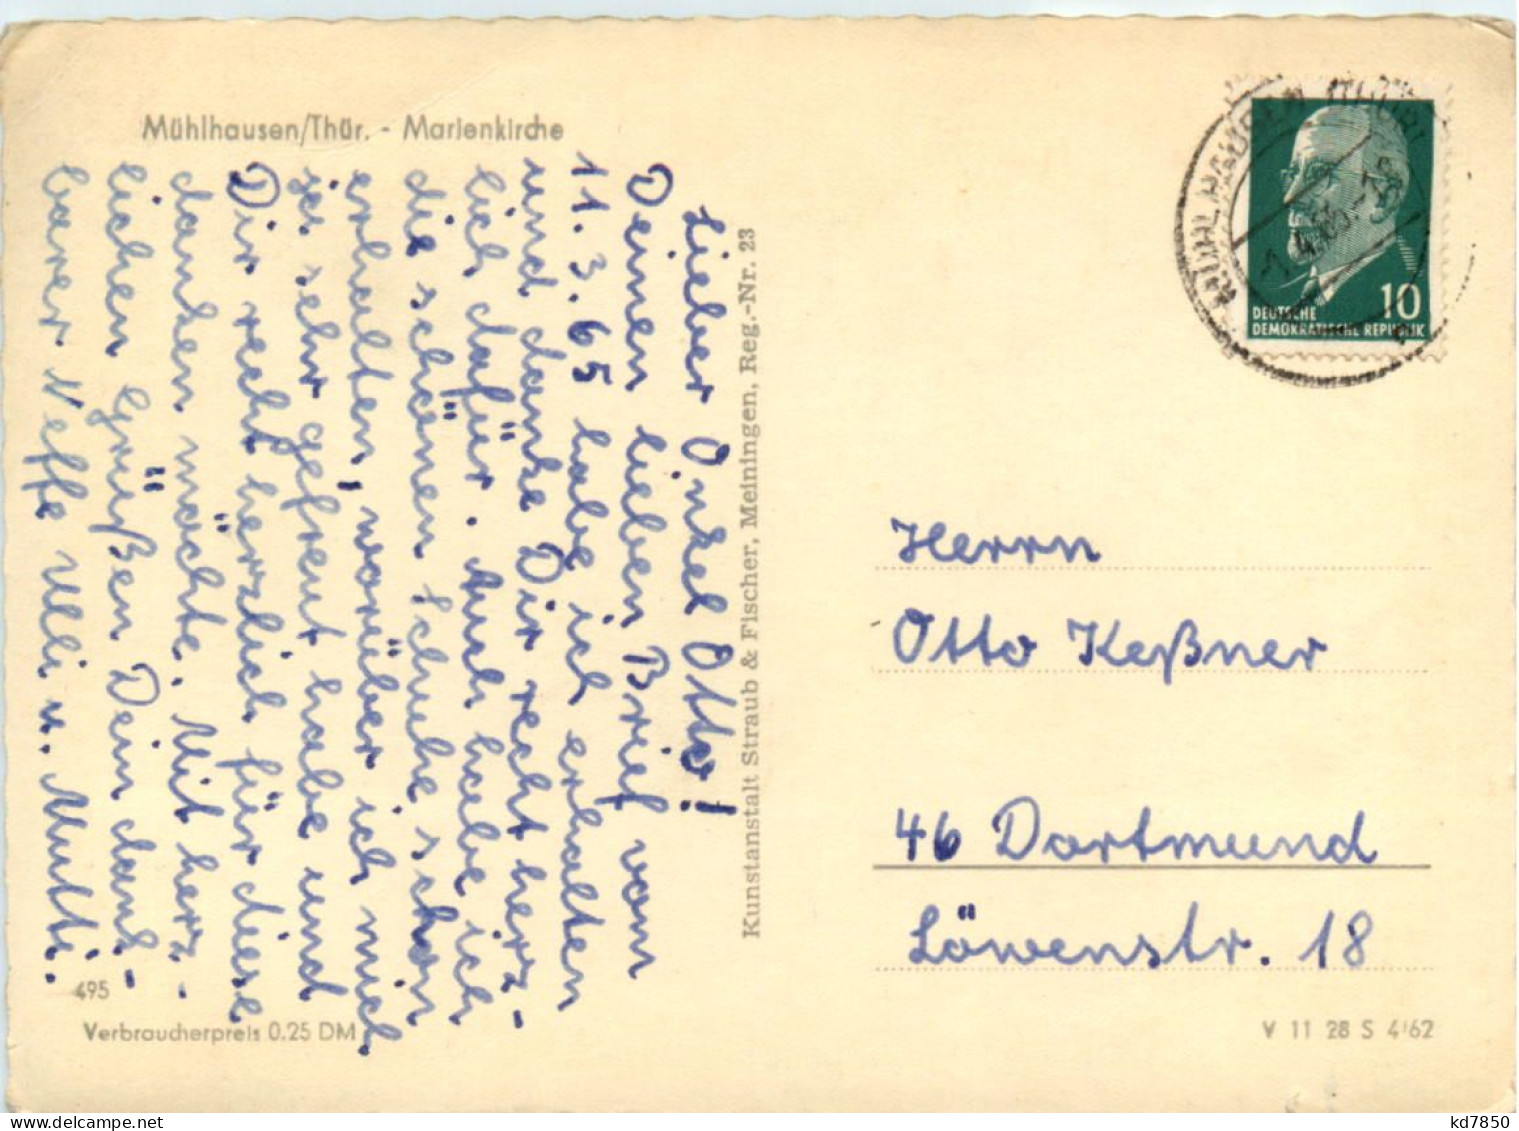 Mühlhausen/Thür. - Marienkirche
Lieber Onkel Otto!
Deinen lieben Brief vom
11.3.65 habe ich erhalten
und danke Dir recht herz-
lich dafür. Auch habe ich
die schönen Schuhe schon
erhalten, worüber ich mich
ja sehr gefreut habe und
Dir recht herzlich für diese
danken möchte. Mit herz-
lichen Grüßen Dein dank-
barer Neffe Ulli u. Mutti.
495
Verbraucherpreis 0.25 DM
Kunstanstalt Straub & Fischer, Meiningen, Reg.-Nr. 23
MÜHLHAUSEN
DEUTSCHE
DEMOKRATISCHE REPUBLIK
10
Herrn
Otto Keßner
46 Dortmund
Löwenstr. 18
V 11 28 S 4/62
kd7850